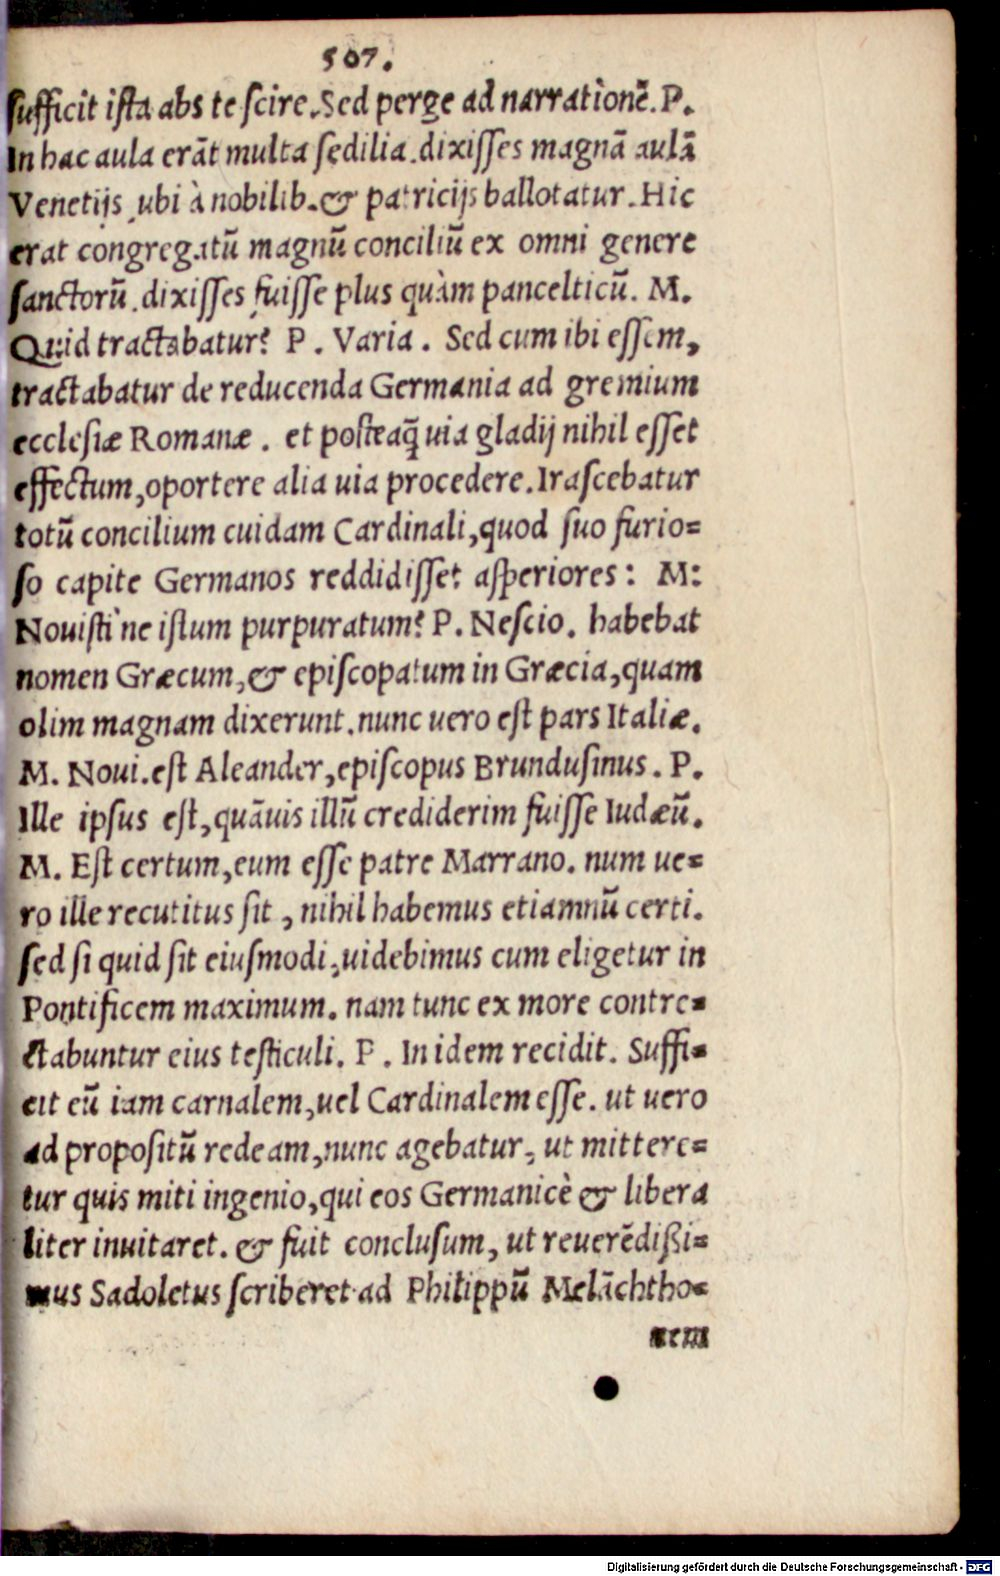 507.
sufficit ista abs te scire. Sed perge ad narrationē. P.
In hac aula erāt multa sedilia. dixisses magnā aulā
Venetijs ubi à nobilib. & patricijs ballotatur. Hic
erat congregatū magnū conciliū ex omni genere
sanctorū. dixisses fuisse plus quàm pancelticū. M.
Quid tractabatur? P. Varia. Sed cum ibi essem,
tractabatur de reducenda Germania ad gremium
ecclesiæ Romanæ. et posteaq̄ uia gladij nihil esset
effectum, oportere alia uia procedere. Irascebatur
totū concilium cuidam Cardinali, quod suo furio=
so capite Germanos reddidisset asperiores: M:
Nouisti ne istum purpuratum? P. Nescio. habebat
nomen Græcum, & episcopatum in Græcia, quam
olim magnam dixerunt. nunc uero est pars Italiæ.
M. Noui. est Aleander, episcopus Brundusinus. P.
Ille ipsus est, quāuis illū crediderim fuisse Iudæū.
M. Est certum, eum esse patre Marrano. num ue=
ro ille recutitus sit, nihil habemus etiamnū certi.
sed si quid sit eiusmodi, uidebimus cum eligetur in
Pontificem maximum. nam tunc ex more contre=
ctabuntur eius testiculi. P. In idem recidit. Suffi=
cit eū iam carnalem, uel Cardinalem esse. ut uero
ad propositū redeam, nunc agebatur, ut mittere=
tur quis miti ingenio, qui eos Germanicè & libera
liter inuitaret. & fuit conclusum, ut reuerēdißi=
mus Sadoletus scriberet ad Philippū Melāchtho=
nem
Digitalisierung gefördert durch die Deutsche Forschungsgemeinschaft - DFG